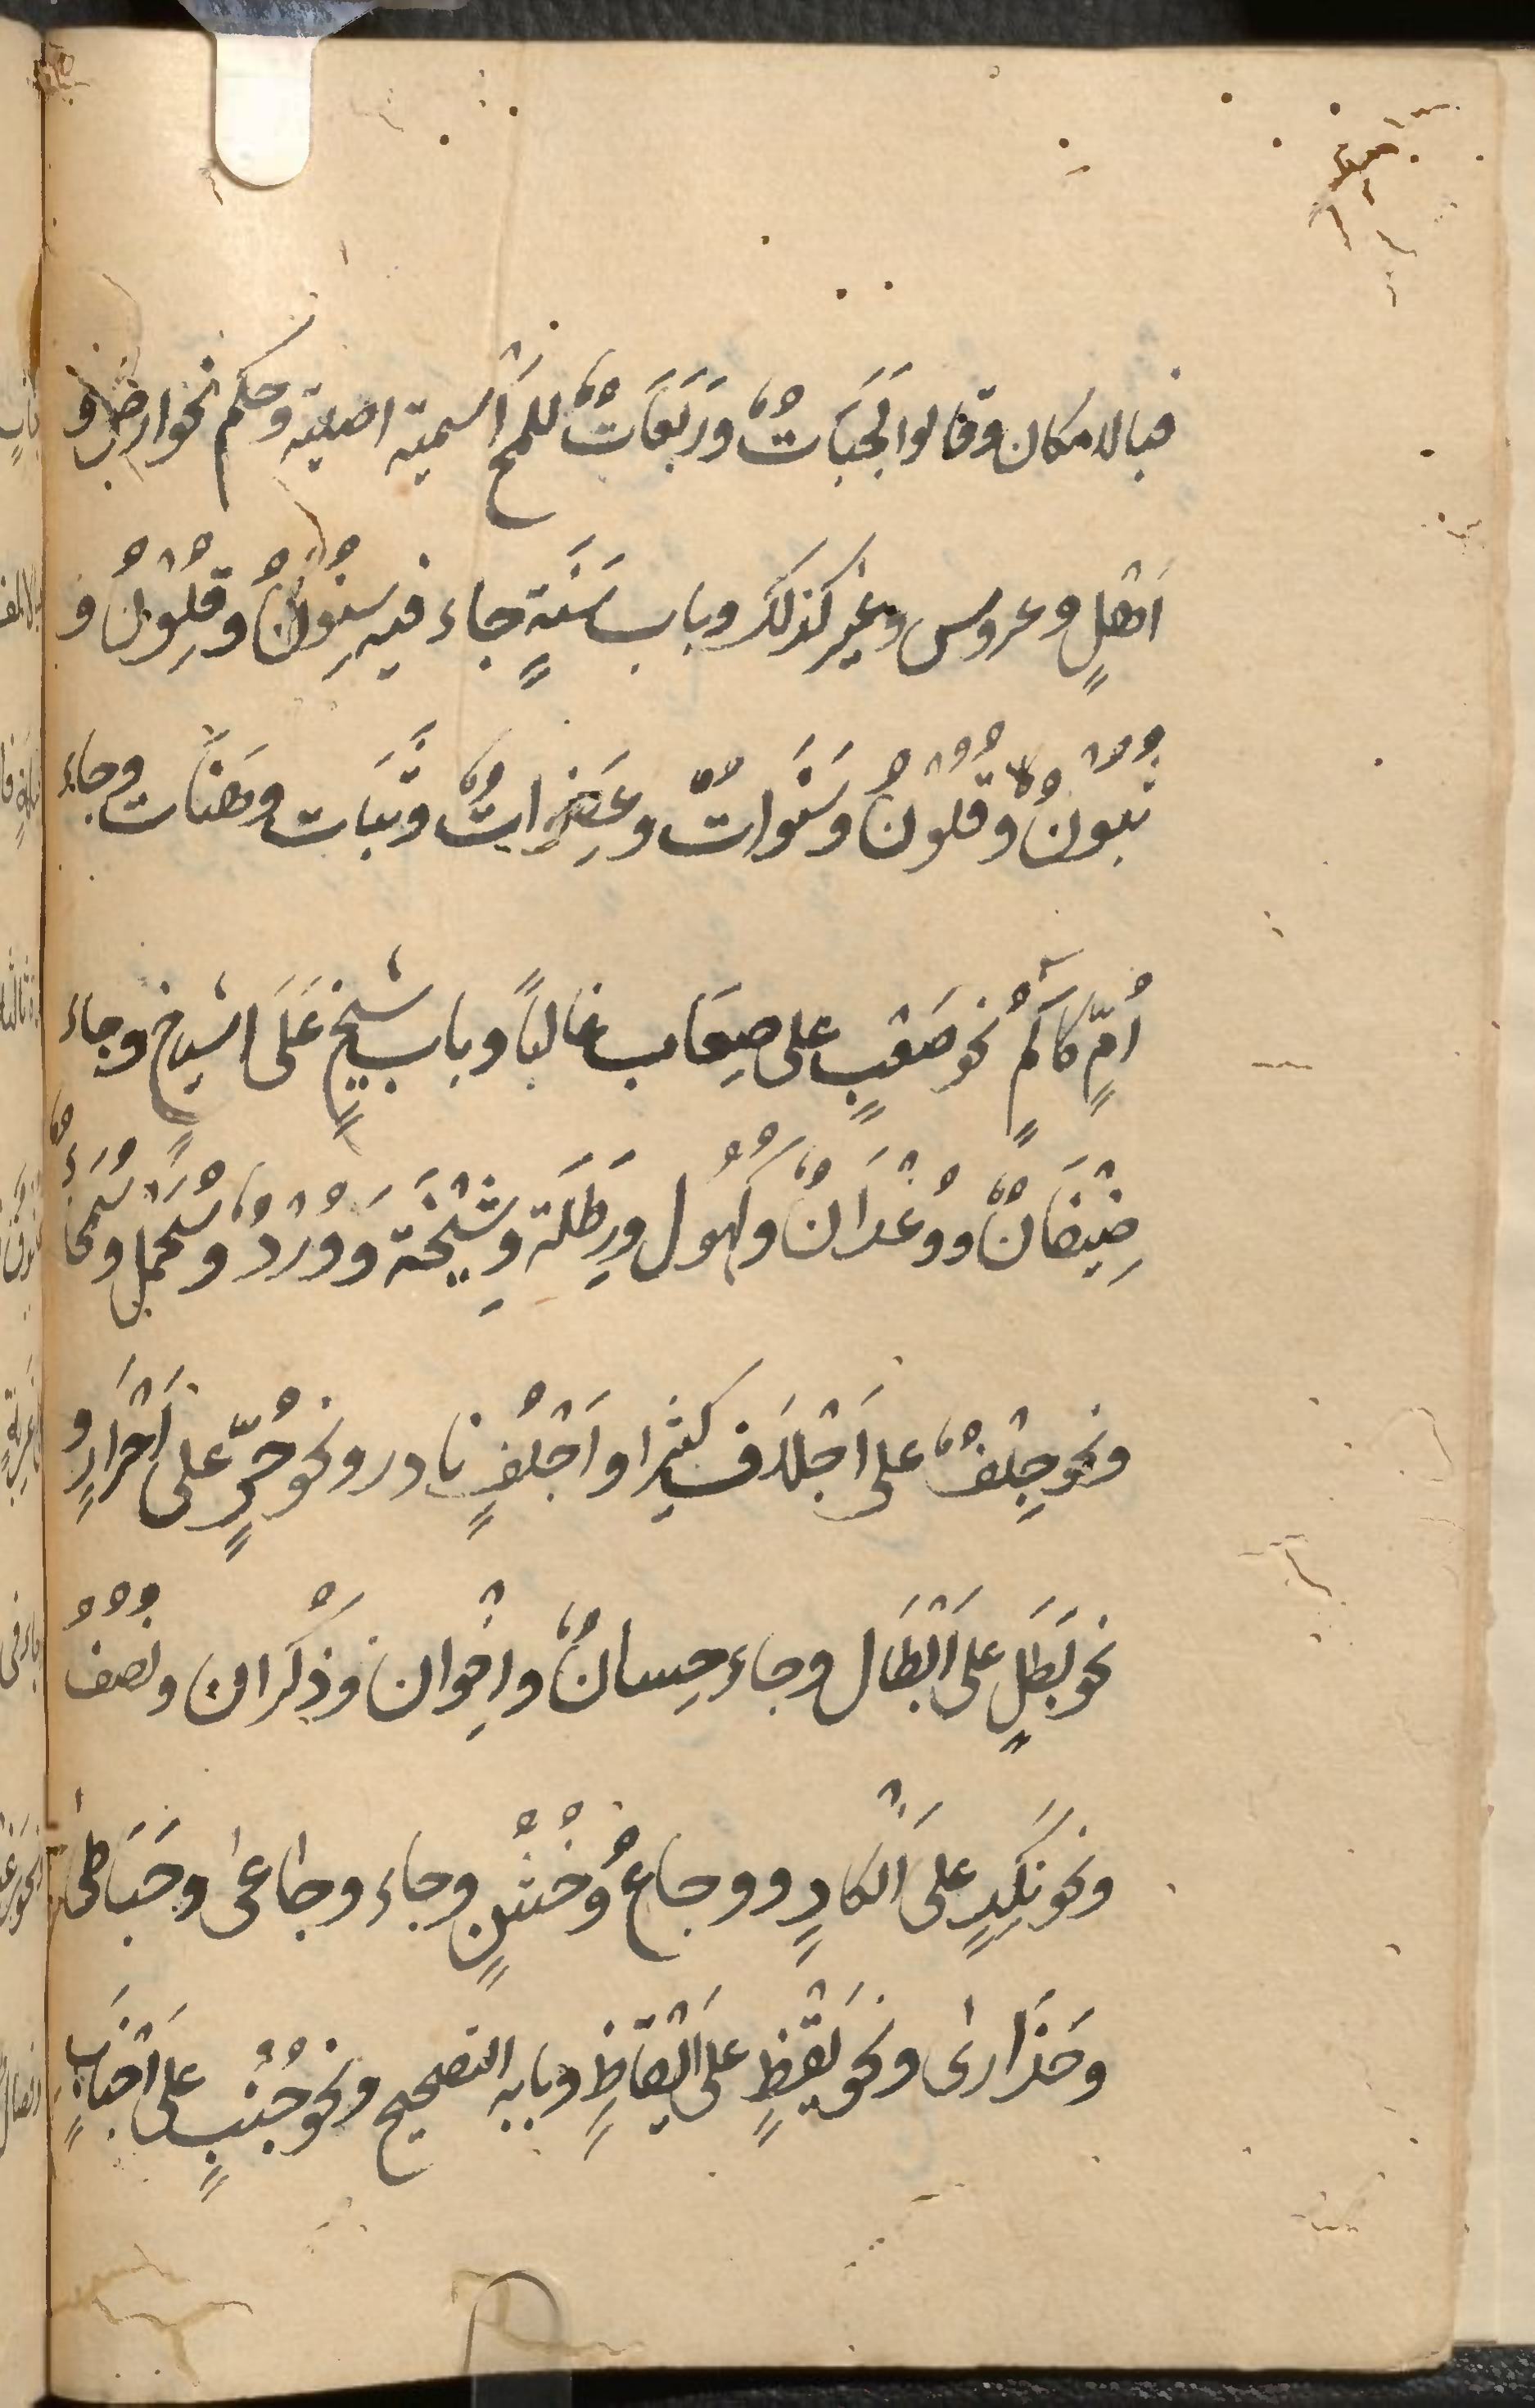 فبالاسكان وقالوا لَجَبَاتٌ وَرَبَعَاتٌ للمح اَسْمية اصلية وحكم نحو ارض و
اَهْلٍ وعروس وعير كذلك وباب سَنَةٍ جاء فيه سِنُوْنُ وقِلُوْنُ و
ثبوْنُ وقُلُوْنُ وسَنَوَاتٌ وعِضَوَاتٌ وثُبَات وهَنَات وجاء
اُمٍّ كآمٍ نحو صَعْبٍ على صِعَاب غالباً وباب شيخٍ عَلَى اشياخٍ وجاء
ضِيْفَانٌ ووُغْدَانٌ وكُهُول ورِطَلَة وشِيْخَة ووُرْدٌ وسُحُلٌ وسُمَحَاءُ
ونحو جِلْفٌ على اَجْلَاف كثيرا واَجْلُفٍ نادر ونحو حُرٍّ على اَحْرَارٍ و
نحو بَطَلٍ على اَبْطَال وجاء حِسانٌ واِخْوان وذُكْرَان ونُصُفٌ
ونحو نَكِدٍ على اَنْكَادٍ ووجاعٌ وخُشْنٍ وجاء وجاعىٰ وحَبَاطىٰ
وحَذَارىٰ ونحو يَقُظٍ على اَيْقَاظٍ وبابه التصحيح ونحو جُنُبٍ على اَجْنَابٍ